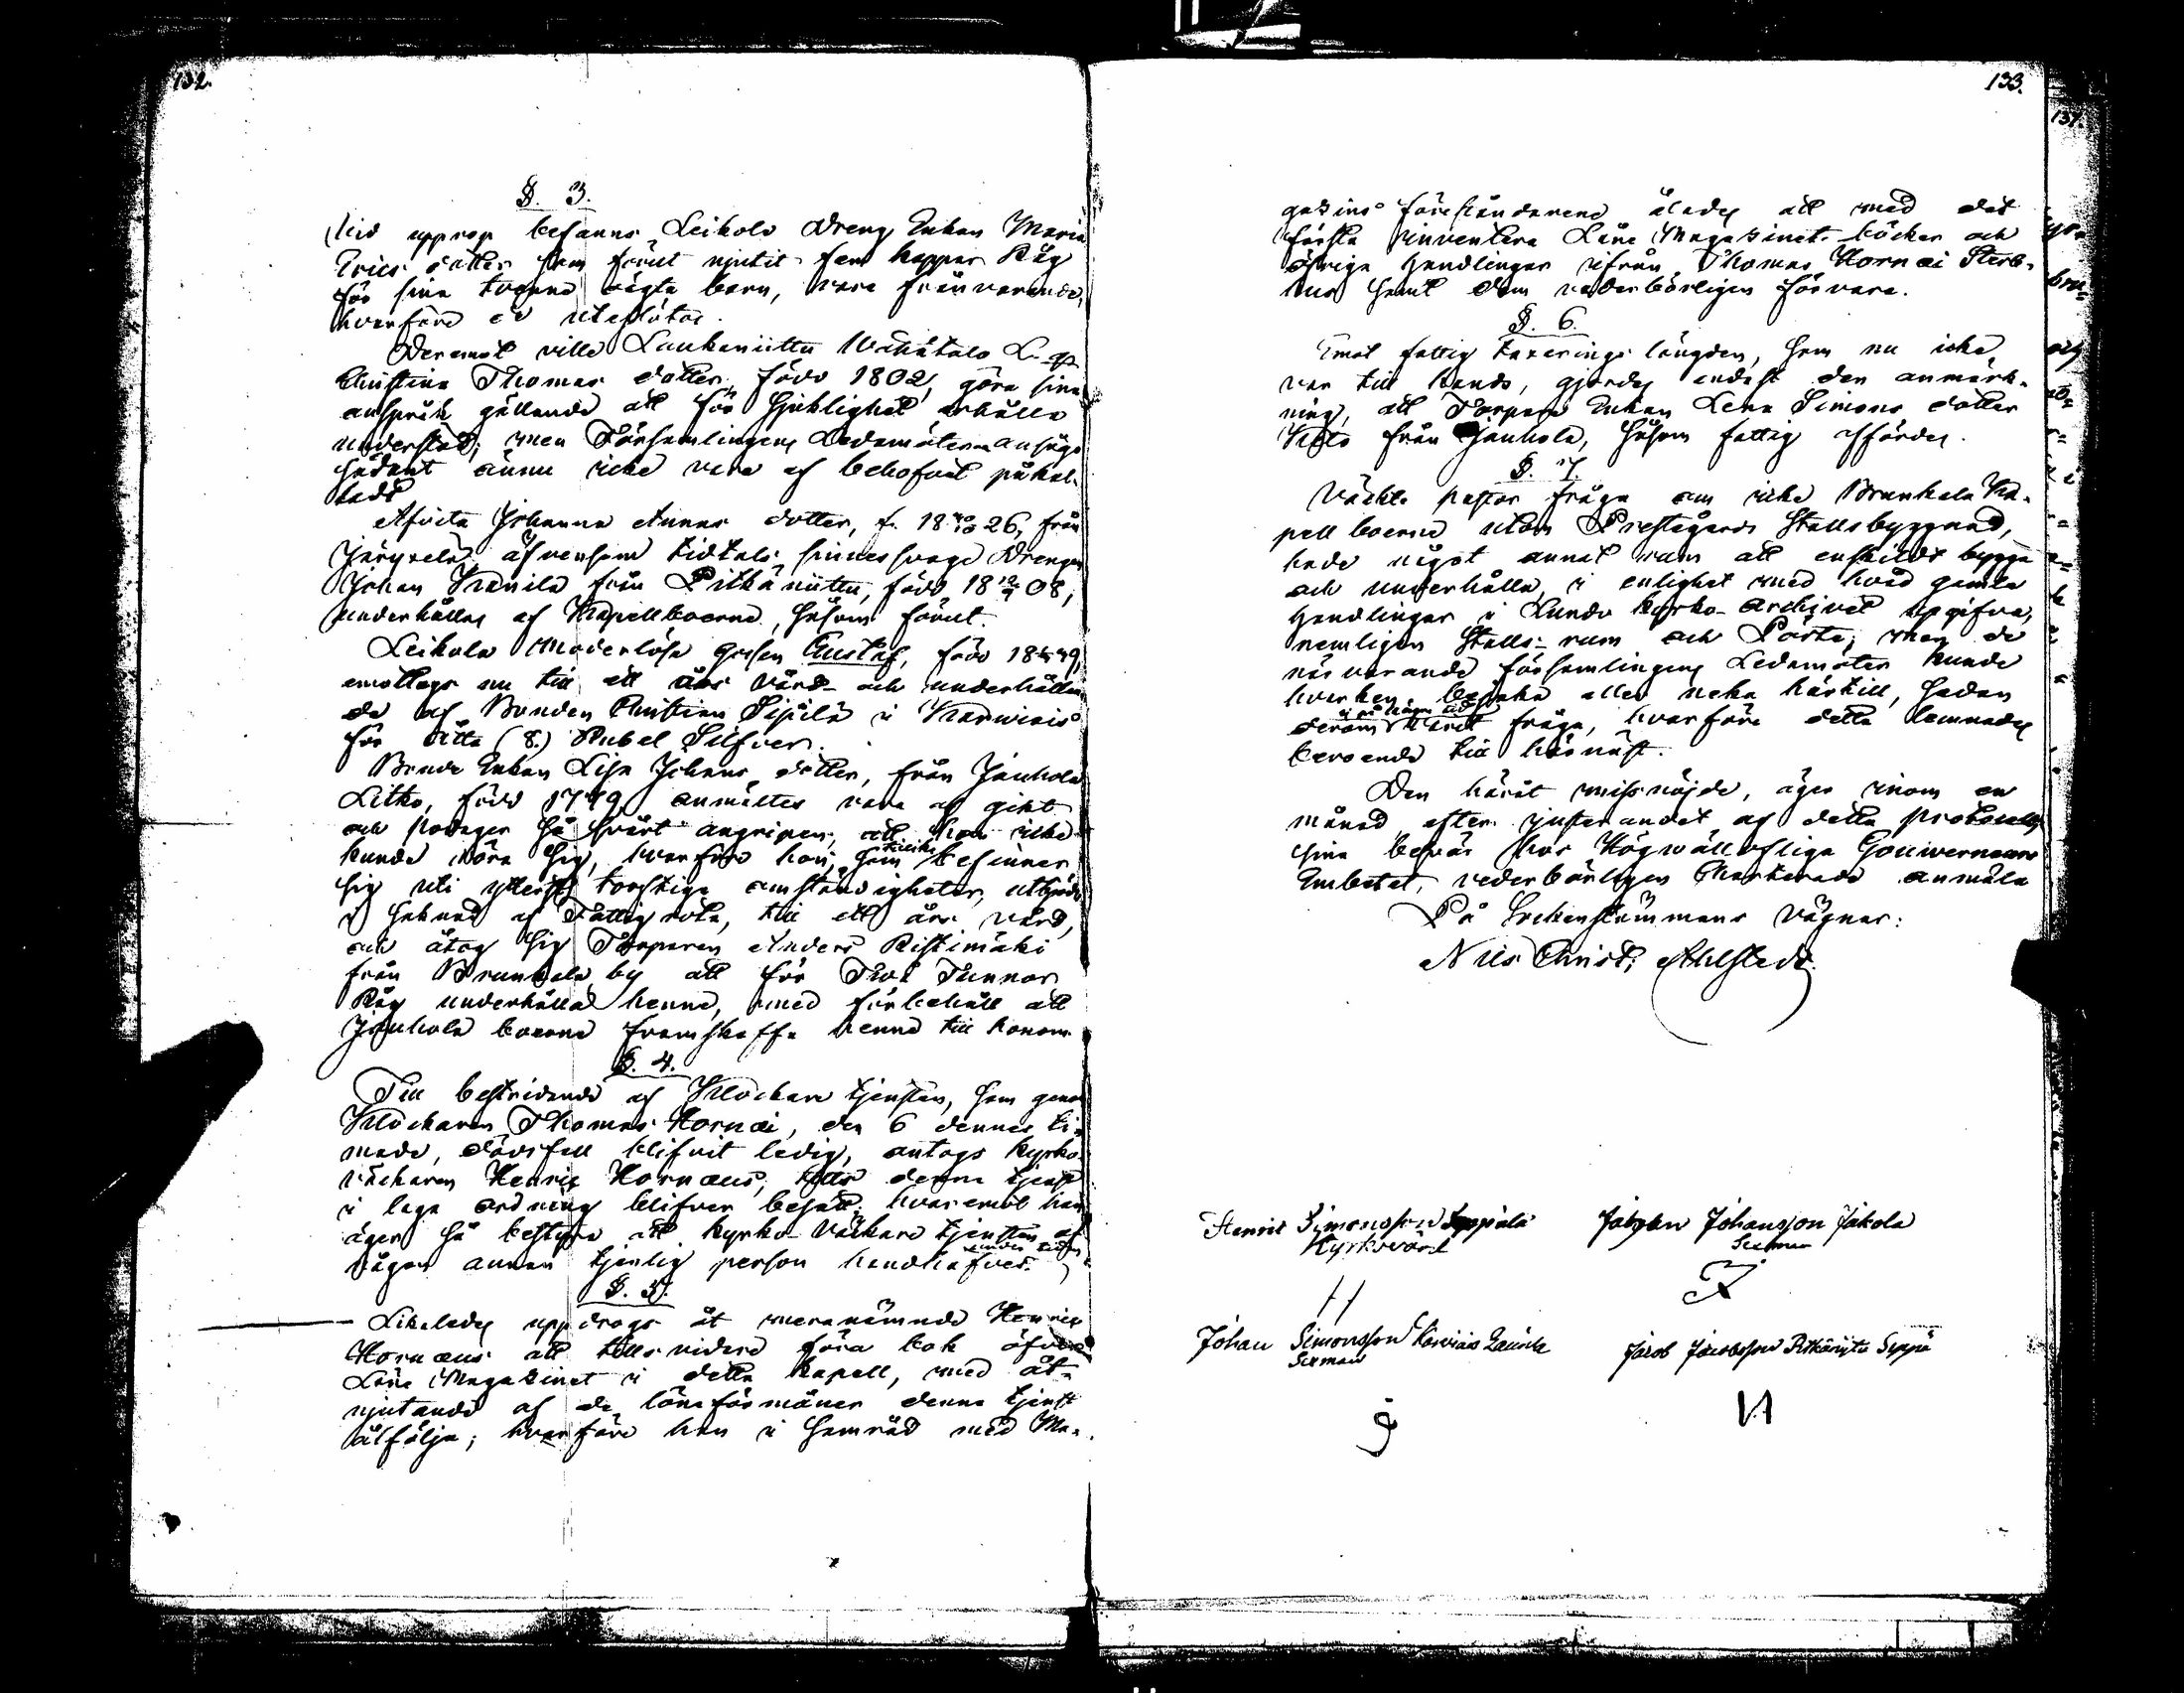 132.
§. 3.
Vid upprop befanns Leikola Dreng Enkan Maria
Erics dotter som förut njutit fem kappar Råg
för sina tvenne oägta barn, vara frånvarande,
hvarföre de uteslötos.
Deremot ville Laukeniittu Wähätalo
Christina Thomas dotter, född 1802, göra sina
anspråk gällande att för sjuklighet erhålla
understöd; men Församlingens Ledamöter ansågo
sådant ännu icke vara af behofvet påkal-
ladt.
Afvita Johanna Annas dotter, f. 18 26, från
Järvelä, äfvensom tidtals sinnessvage Drengen
Johan Kanila från Pitkäniittu, född 18 08,
underhålles af Kapellboerne, såsom förut.
Leikola Moderlösa gossen Gustaf, född 1849,
emottogs nu till ett års vård- och underhållan-
de af Bonden Christian Sipilä i Karwiais
för åtta (8.) Rubel Silfver.
Bonde Enkan Lisa Johans dotter, från Jauhola
Litko, född 1779 anmältes vara af gikt
och podager så svårt angripen, att hon icke
kunde röra sig, hvarföre hon, som tillika befinner
sig uti ytterst torftiga omständigheter, utbjöds
i saknad af Fattigrota, till ett års vård,
och åtog sig Torparen Anders Ristimäki
från Brunkala by att för Två Tunnor
Råg underhålla henne, med förbehåll att
Jauhola boerne framskaffa henne till honom.
§. 4.
Till bestridande af Klockare tjensten, som genom
Klockaren Thomas Hornæi, den 6 dennes ti-
made, dödsfall blifvit ledig, antogs kyrko-
väckaren Henric Hornæus, tills denna tjenst
i laga ordning blifver besatt; hvaremot han
äger så bestyra att kyrko väckare tjensten af
någon annan tjenlig person under tiden handhafves.
§. 5.
Likaledes uppdrogs åt meranämnde Henric
Hornæus att tillsvidare föra bok öfver
Låne Magazinet i detta Kapell, med åt-
njutande af de löneförmåner denna tjenst
åtfölja; hvarföre han i samråd med Ma-
133.
gazins föreståndarene ålades att med det
första inventera Låne Magazinets böcker och
öfriga handlingar ifrån Thomas Hornæi Sterb-
hus samt dem vederbörligen förvara.
§. 6.
Emot fattig taxerings längden, som nu icke
var till hands, gjordes endast den anmärk-
ning, att Torpare Enkan Lena Simons dotter
från Jauhola, såsom fattig affördes.
§. 7.
Väckte pastor fråga om icke Brunkala Ka-
pell boerne utom Prestegårds Stallsbyggnad,
hade något annat rum att enskildt bygga
och underhålla, i enlighet med hvad gamla
handlingar i Lundo kyrko-archivet uppgifva,
nemligen Stalls-rum och Pörte; men de
närvarande församlingens Ledamöter kunde
hvarken bejaka eller neka härtill, sedan
derom ej på någon tid varit fråga, hvarföre detta lemnades
beroende till härnäst.
Den häråt missnöjde, äger inom en
månad efter justerandet af detta protocoll
sina besvär hos Högwällofliga Gouvernements
Embetet, vederbörligen Charterade anmäla
På Sockenstämmans vägnar:
Nils Christ. Ahlstedt.
Henric Simonsson Seppälä
Kyrkovärd
Johan Johansson Jakola
Sexman
Johan Simonsson Karviais
Sexman
Jacob Jacobsson Pitkänijtu Seppä
134.